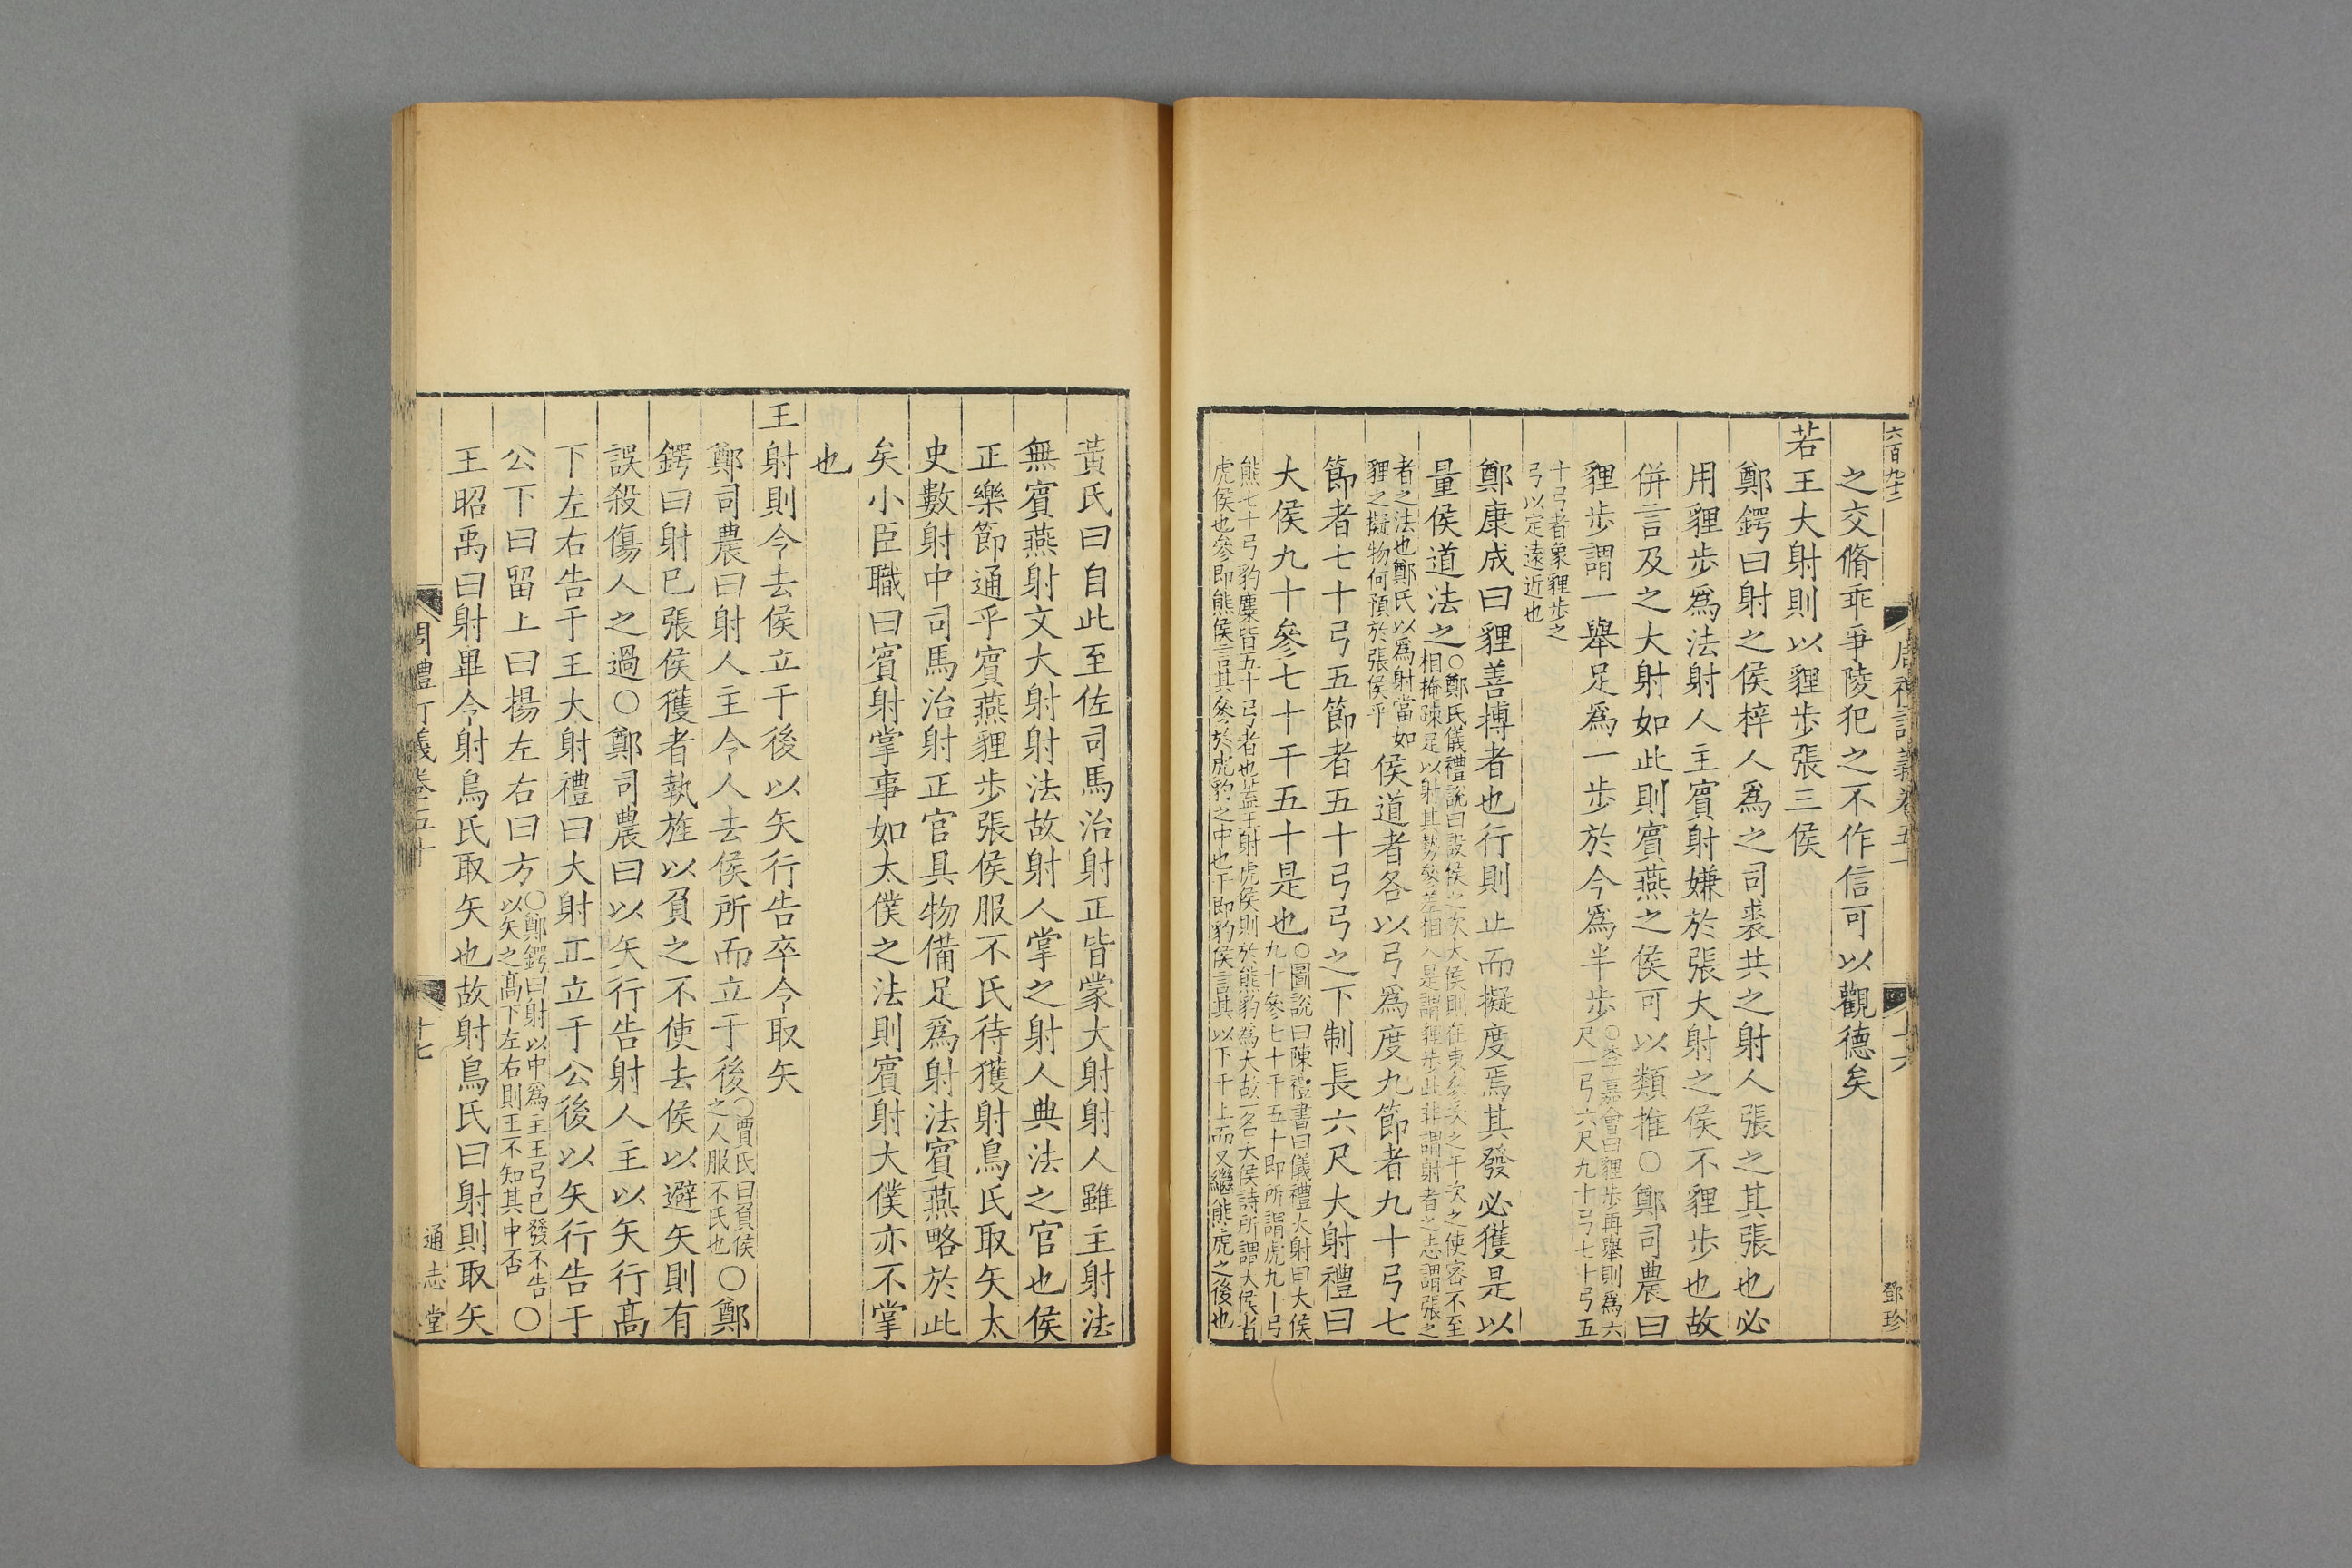 六百九十二
鄧珍
之交脩乖爭陵犯之不作信可以觀德矣
若王大射則以貍步張三侯
鄭鍔曰射之侯梓人爲之司裘共之射人張之其張也必
用貍步爲法射人主賔射嫌於張大射之侯不貍步也故
併言及之大射如此則賔燕之侯可以類推○鄭司農曰
貍步謂一舉足爲一步於今爲半步○李嘉會曰貍步再舉則爲六
尺一弓六尺九十弓七十弓五
十弓者象貍步之
弓以定遠近也
鄭康成曰貍善搏者也行則止而擬度焉其發必獲是以
量侯道法之○鄭氏儀禮說曰設侯之次大侯則在東參次之干次之使密不至
相掩踈足以射其勢參差相入是謂貍步此非謂射者之志謂張之
者之法也鄭氏以為射當如
貍之擬物何預於張侯乎
侯道者各以弓爲度九節者九十弓七
節者七十弓五節者五十弓弓之下制長六尺大射禮曰
大侯九十參七十干五十是也○圖說曰陳禮書曰儀禮大射曰大侯
九十參七十干五十即所謂虎九十弓
熊七十弓豹麋皆五十弓者也蓋王射虎侯則於熊豹為大故一名大侯詩所謂大侯者
虎侯也參即熊侯言其參於虎豹之中也干即豹侯言其以下干上而又繼熊虎之後也
黃氏曰自此至佐司馬治射正皆蒙大射射人雖主射法
無賔燕射文大射射法故射人掌之射人典法之官也侯
正樂節通乎賔燕貍步張侯服不氏待獲射鳥氏取矢太
史數射中司馬治射正官具物備足爲射法賔燕略於此
矣小臣職曰賔射掌事如太僕之法則賔射大僕亦不掌
也
王射則令去侯立于後以矢行告卒令取矢
鄭司農曰射人主令人去侯所而立于後○賈氏曰負侯
之人服不氏也
○鄭
鍔曰射已張侯獲者執旌以負之不使去侯以避矢則有
誤殺傷人之過○鄭司農曰以矢行告射人主以矢行高
下左右告于王大射禮曰大射正立于公後以矢行告于
公下曰留上曰揚左右曰方○鄭鍔曰射以中爲主王弓已發不告
以矢之高下左右則王不知其中否
○
王昭禹曰射畢令射鳥氏取矢也故射鳥氏曰射則取矢
周禮訂義卷五十
十七
通志堂